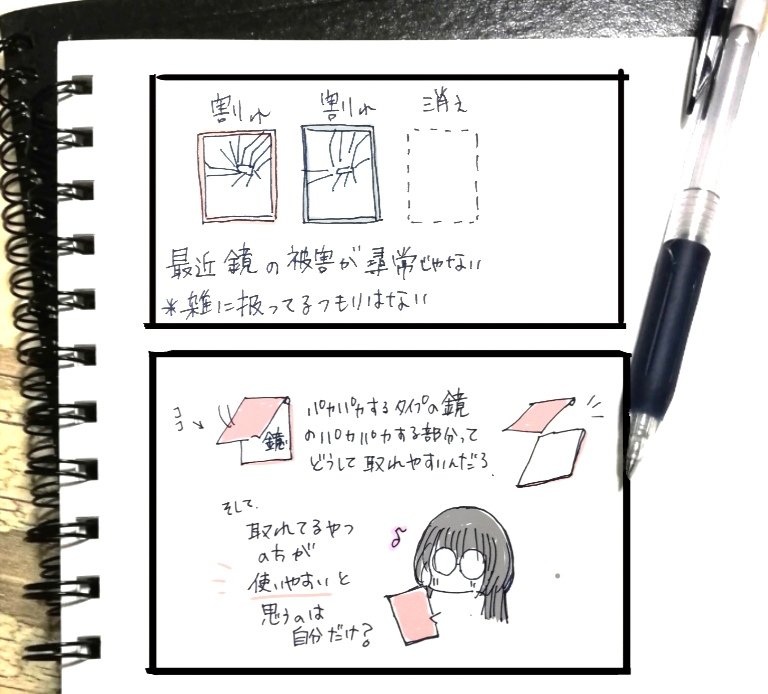 割れ 割れ 消え
最近鏡の被害が尋常じゃない
*雑に扱ってるつもりはない
ココ
鏡
パカパカするタイプの鏡
のパカパカする部分って
どうして取れやすいんだろ.
そして.
取れてるやつ
の方が
使いやすいと
思うのは
自分だけ?